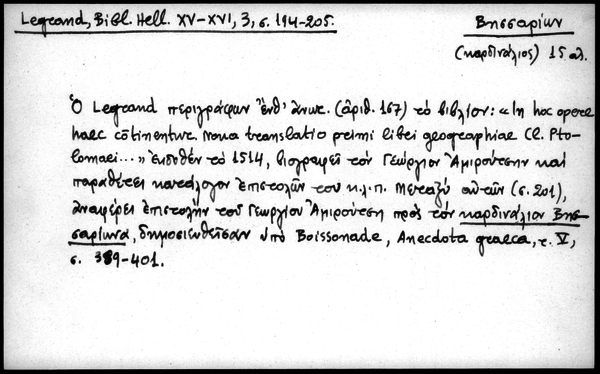 Legrand, Bibl. Hell. XV-XVI, 3, σ. 194-205.
Βησσαρίων
(καρδινάλιος) 15 αἰ.
Ὁ Legrand περιγράφων ἔνθ' ἀνωτ. (ἀριθ. 167) τὸ βιβλίον: «In hoc opere
haec cōtinentur. Nova translatio primi libri geographiae Cl. Pto-
lomaei...» ἐκδοθὲν τὸ 1514, βιογραφεῖ τὸν Γεώργιον Ἀμιρούτσην καὶ
παραθέτει κατάλογον ἐπιστολῶν του κ.λ.π. Μεταξὺ αὐτῶν (σ. 201),
ἀναφέρει ἐπιστολὴν τοῦ Γεωργίου Ἀμιρούτση πρὸς τὸν καρδινάλιον Βησ-
σαρίωνα, δημοσιευθεῖσαν ὑπὸ Boissonade, Anecdota graeca, τ. V,
σ. 389-401.